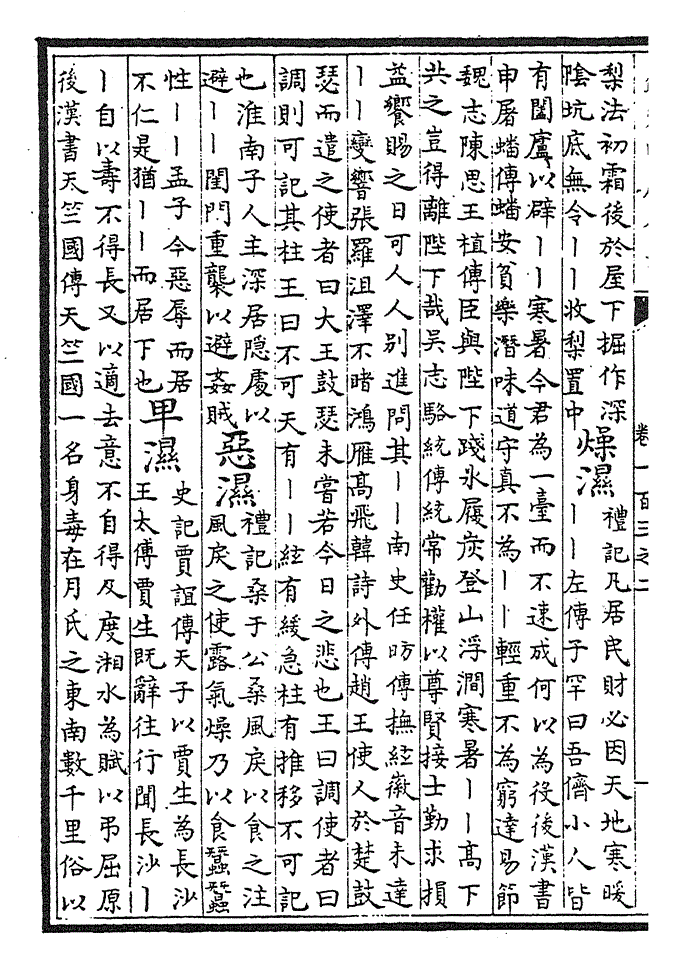 卷一百三之二
梨法初霜後於屋下掘作深
陰坑底無令丨丨收梨置中
燥濕
禮記凡居民財必因天地寒暖
丨丨左傳子罕曰吾儕小人皆
有闔廬以辟丨丨寒暑今君為一臺而不速成何以為役後漢書
申屠蟠傳蟠安貧樂潛味道守真不為丨丨輕重不為窮達易節
魏志陳思王植傳臣與陛下踐冰履炭登山浮澗寒暑丨丨高下
共之豈得離陛下哉吳志駱統傳統常勸權以尊賢接士勤求損
益饗賜之日可人人別進問其丨丨南史任昉傳撫絃徽音未達
丨丨變響張羅沮澤不睹鴻雁高飛韓詩外傳趙王使人於楚鼓
瑟而遣之使者曰大王鼓瑟未嘗若今日之悲也王曰調使者曰
調則可記其柱王曰不可天有丨丨絃有緩急柱有推移不可記
也淮南子人主深居隱處以
避丨丨閨門重襲以避姦賊
惡濕
禮記桑于公桑風戾以食之注
風戾之使露氣燥乃以食蠶蠶
性丨丨孟子今惡辱而居
不仁是猶丨丨而居下也
卑濕
史記賈誼傳天子以賈生為長沙
王太傅賈生既辭往行聞長沙丨
丨自以壽不得長又以適去意不自得及度湘水為賦以弔屈原
後漢書天竺國傳天竺國一名身毒在月氏之東南數千里俗以